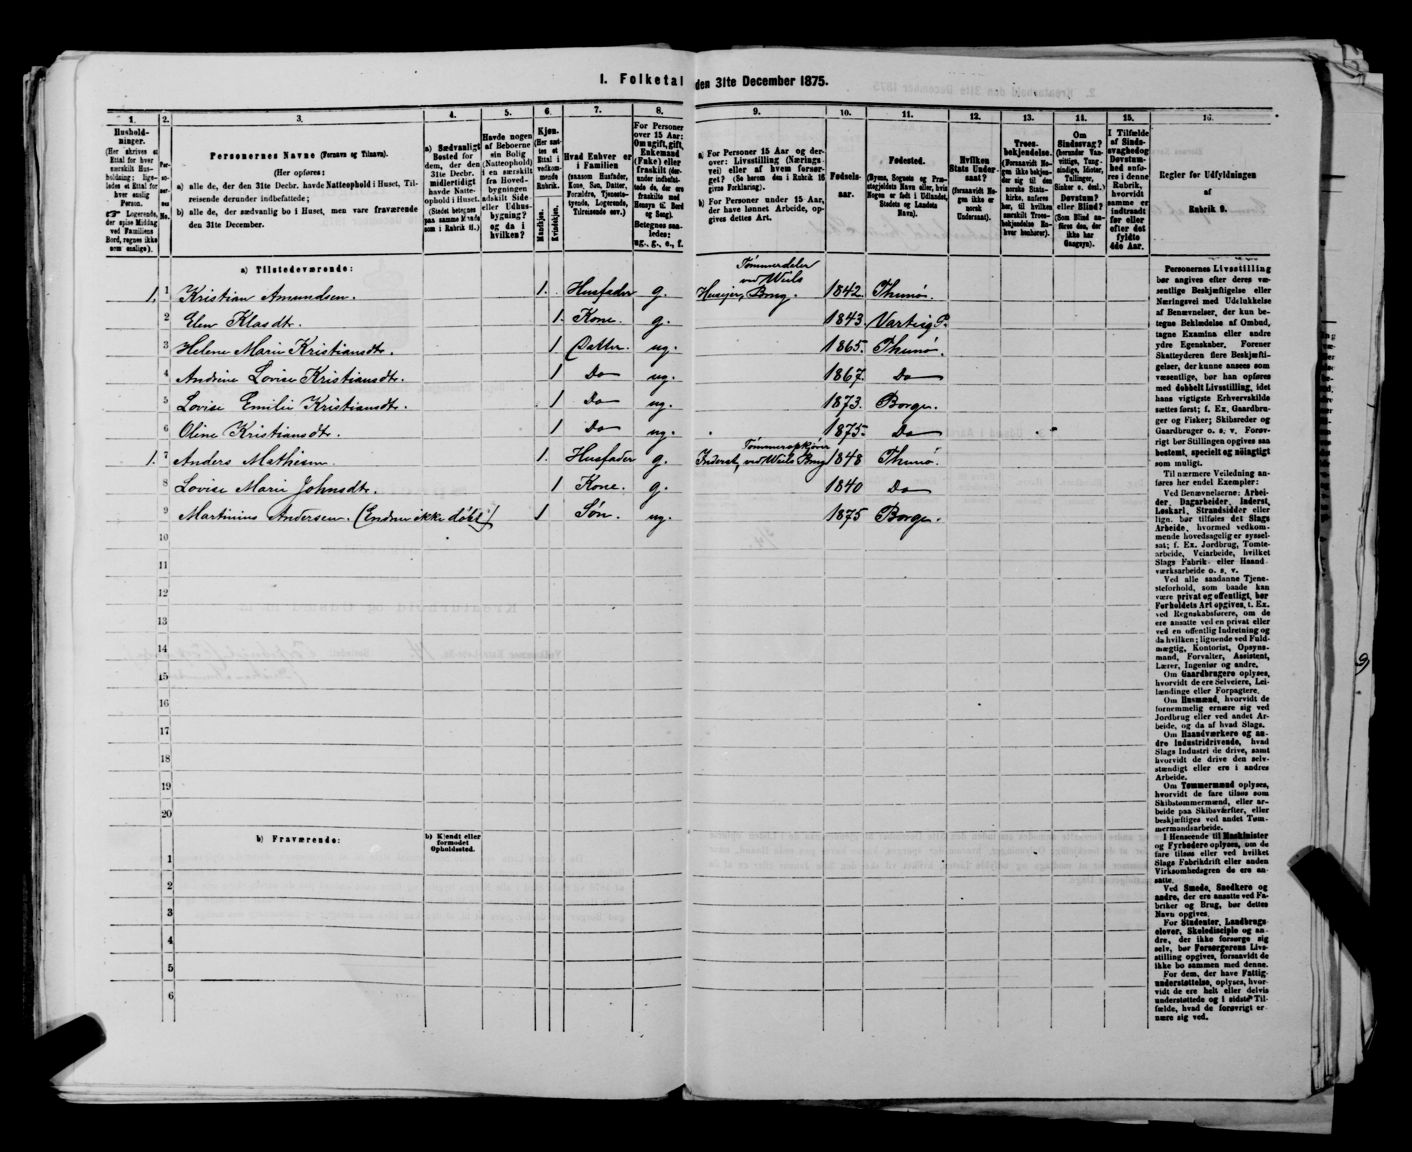 I. Folketal den 31te December 1875.
1. 2. 3. 4. 5. 6. 7. 8. 9. 10. 11. 12. 13. 14. 15. 16.
Husholdninger.
(Her skrives et Ettal for hver særskilt Husholdning; ligeledes et Ettal for hver enslig Person.
☞ Logerende, der spise Middag ved Familiens Bord, regnes ikke som enslige).
Personernes No.
Personernes Navne (Fornavn og Tilnavn).
(Her opføres:
a) alle de, der den 31te Decbr. havde Natteophold i Huset, Tilreisende derunder indbefattede;
b) alle de, der sædvanlig bo i Huset, men vare fraværende den 31te December.
a) Sædvanligt Bosted for dem, der den 31te Decbr. midlertidigt havde Natteophold i Huset.
(Stedet betegnes paa samme Maade som i Rubrik 11.)
Havde nogen af Beboerne sin Bolig (Natteophold) i en særskilt fra Hovedbygningen adskilt Side- eller Udhusbygning? og da i hvilken?
Kjøn.
(Her sættes et Ettal i vedkommende Rubrik.
Mandkjøn. Kvindekjøn.
Hvad Enhver er i Familien
(saasom Husfader, Kone, Søn, Datter, Forældre, Tjenestetyende, Logerende, Tilreisende osv.)
For Personer over 15 Aar: Om ugift, gift, Enkemand (Enke) eller fraskilt (derunder indbefattede de, der ere fraskilte med Hensyn til Bord og Seng).
Betegnes saaledes: ug., g., e., f.
a. For Personer 15 Aar og derover: Livsstilling (Næringsvei) eller af hvem forsørget? (Se herom den i Rubrik 16 givne Forklaring).
b) For Personer under 15 Aar, der have lønnet Arbeide, opgives dettes Art.
Fødselsaar.
Fødested.
(Byens, Sognets og Præstegjeldets Navn eller, hvis Nogen er født i Udlandet, Stedets og Landets Navn).
Hvilken Stats Undersaat?
(forsaavidt Nogen ikke er norsk Undersaat).
Troesbekjendelse.
(Forsaavidt Nogen ikke bekjender sig til den norske Statskirke, anføres her, til hvilken særskilt Troesbekjendelse Enhver henhører).
Om Sindssvag? (herunder Vanvittige, Tungsindige, Idioter, Tullinger, Sinker o. desl.) Døvstum? eller Blind? (Som Blind anføres den, der ikke har Gangsyn).
I Tilfælde af Sindssvaghed og Døvstumhed anføres i denne Rubrik, hvorvidt samme er indtraadt før eller efter det fyldte 4de Aar.
Regler for Udfyldningen
af
Rubrik 9.
a) Tilstedeværende:
1. 1 Kristian Amundsen. 1. Husfader g. Huseier, Tømmerdeler ved Weils Brug. 1842. Thunø.
2 Elen Klasdt. 1. Kone. g. 1843. Varteig P.
3 Helene Marie Kristiansdt. 1 Datter. ug. 1865. Thunø.
4 Andrine Lovise Kristiansdt. 1 Do ug. 1867. Do
5 Lovise Emilie Kristiansdt. 1 Do ug. 1873. Borge.
6 Oline Kristiansdt. 1 Do ug. 1875. Do
1. 7 Anders Mathisen. 1. Husfader g. Inderst, Tømmeropkjører ved Weils Brug 1848 Thunø.
8 Lovise Marie Johnsdt. 1 Kone. g. 1840 Do
9 Martinius Andersen. (Endnu ikke døbt) 1 Søn. ug. 1875 Borge.
10
11
12
13
14
15
16
17
18
19
20
b) Fraværende: b) Kjendt eller formodet Opholdssted.
1
2
3
4
5
6
Personernes Livsstilling
bør angives efter deres væ-
sentlige Beskjæftigelse eller
Næringsvei med Udelukkelse
af Benævnelser, der kun be-
tegne Beklædelse af Ombud,
tagne Examina eller andre
ydre Egenskaber. Forener
Skatteyderen flere Beskjæfti-
gelser, der kunne ansees som
væsentlige, bør han opføres
med dobbelt Livsstilling, idet
hans vigtigste Erhvervskilde
sættes først; f. Ex. Gaardbru-
ger og Fisker; Skibsreder og
Gaardbruger o. s. v. Forøv-
rigt bør Stillingen opgives saa
bestemt, specielt og nøiagtigt
som muligt.
Til nærmere Veiledning an-
føres her endel Exempler:
Ved Benævnelserne: Arbei-
der, Dagarbeider, Inderst,
Løskarl, Strandsidder eller
lign. bør tilføies det Slags
Arbeide, hvormed vedkom-
mende hovedsagelig er syssel-
sat; f. Ex. Jordbrug, Tomte-
arbeide, Veiarbeide, hvilket
Slags Fabrik- eller Haand-
værksarbeide o. s. v.
Ved alle saadanne Tjene-
steforhold, som baade kan
være privat og offentligt, bør
Forholdets Art opgives, t. Ex.
ved Regnskabsførere, om de
ere ansatte ved en privat eller
ved en offentlig Indretning og
da hvilken; lignende ved Fuld-
mægtig, Kontorist, Opsyns-
mand, Forvalter, Assistent,
Lærer, Ingeniør og andre.
Om Gaardbrugere oplyses,
hvorvidt de ere Selveiere, Lei-
lændinge eller Forpagtere.
Om Husmænd, hvorvidt de
fornemmelig ernære sig ved
Jordbrug eller ved andet Ar-
beide, og da af hvad Slags.
Om Haandværkere og an-
dre Industridrivende, hvad
Slags Industri de drive, samt
hvorvidt de drive den selv-
stændigt eller ere i andres
Arbeide.
Om Tømmermænd oplyses,
hvorvidt de fare tilsøs som
Skibstømmermænd, eller ar-
beide paa Skibsværfter, eller
beskjæftiges ved andet Tøm-
mermandsarbeide.
I Henseende til Maskinister
og Fyrbødere oplyses, om de
fare tilsøs eller ved hvilket
Slags Fabrikdrift eller anden
Virksomhedsgren de ere an-
satte.
Ved Smede, Snedkere og
andre, der ere ansatte ved Fa-
briker og Brug, bør dettes
Navn opgives.
For Studenter, Landbrugs-
elever, Skoledisciple og an-
dre, der ikke forsørge sig
selv, bør Forsørgerens Livs-
stilling opgives, forsaavidt de
ikke bo sammen med denne.
For dem, der have Fattig-
understøttelse, oplyses, hvor-
vidt de ere helt eller delvis
understøttede og i sidste Til-
fælde, hvad de forøvrigt er-
nære sig ved.